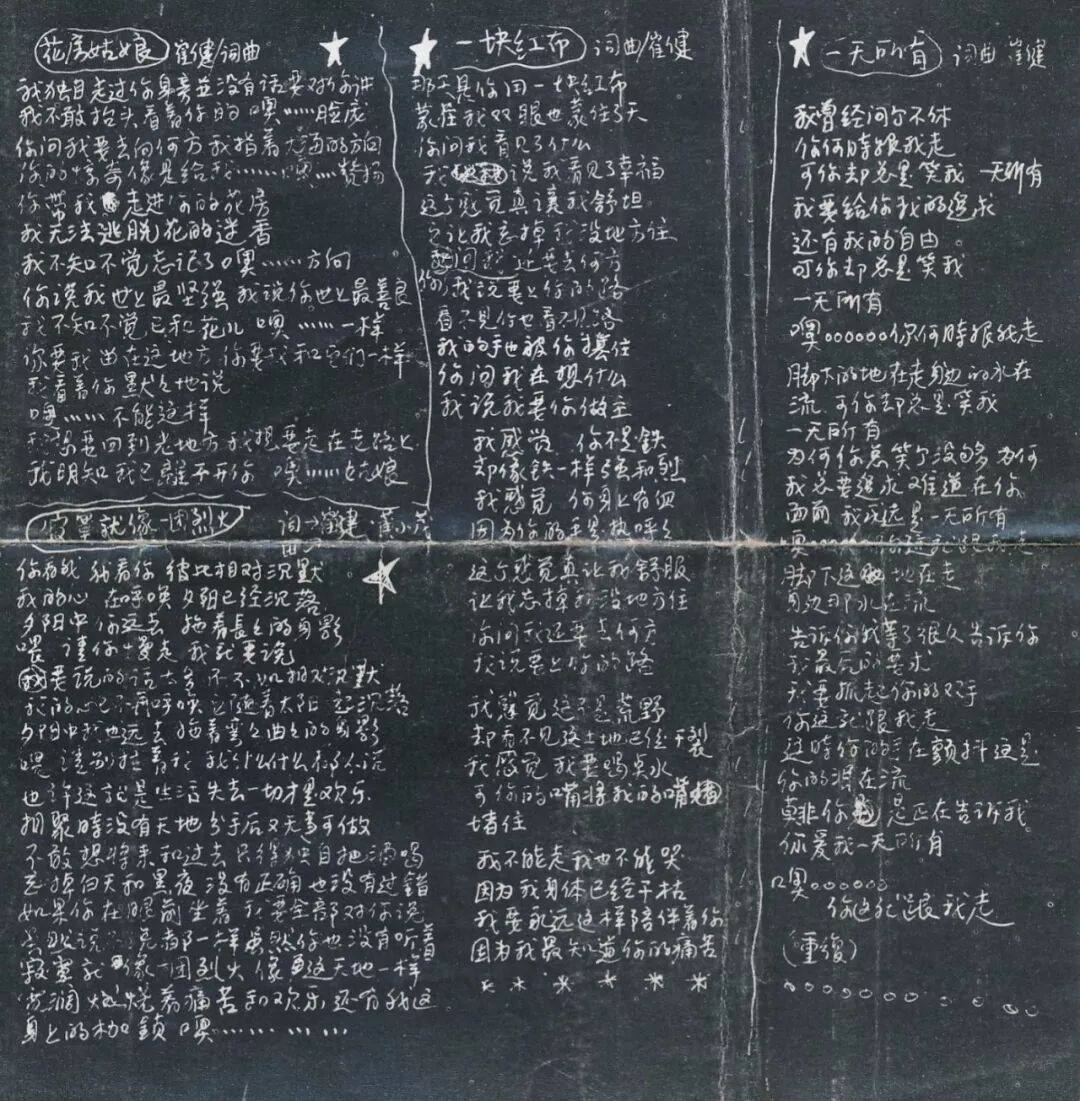 花房姑娘 崔健词曲
我独自走过你身旁並没有话要对你讲
我不敢抬头看着你的 噢……脸庞
你问我要去向何方 我指着大海的方向
你的惊奇像是给我…… 噢……赞扬
你带我走进你的花房
我无法逃脱花的迷香
我不知不觉忘记了噢……方向
你说我世上最坚强 我说你世上最善良
我不知不觉已和花儿 噢……一样
你要我留在这地方 你要我和它们一样
我看着你默々地说
噢……不能这样
我想要回到老地方 我想要走在走路上
我明知我已離不开你 噢……姑娘
寂寞就像一团烈火 词 崔健·黄小茂
曲
你看我 我看你 彼此相对沉默
我的心 在呼唤 夕阳已经沉落
夕阳中 你远去 拖着長々的身影
喂 请你慢走 我就要说
我要说的话太多 不 不如相对沉默
我的心已不再呼唤 它随着太阳 沉落
夕阳中我也远去 拖着弯々曲々的身影
喂 请别拦着我 我什么什么都不说
也许这就是生活失去一切才是欢乐
相聚時没有天地 分手后又无事可做
不敢想将来和过去 只得独自把酒喝
忘掉白天和黑夜 没有正确也没有过錯
如果你在眼前坐着 我要全部对你说
虽然你也没有听着
寂寞就像一团烈火 像这天地一样
宽阔 燃烧着痛苦和欢乐 还有我这
身上的枷鎖 噢……
一块红布 词曲/崔健
那天是你用一块红布
蒙住我双眼也蒙住了天
你问我看见了什么
我说我看见了幸福
这个感觉真讓我舒坦
它让我忘掉我没地方住
你问我还要去何方
我说要上你的路
看不见你也看不见路
我的手也被你攥住
你问我在想什么
我说我要你做主
我感觉 你不是鉄
却像鉄一样强和烈
我感觉 你身上有血
因为你的手是热呼々
这个感觉真让我舒服
让我忘掉我没地方住
你问我还要去何方
我说要上你的路
我感觉这不是荒野
却看不见这土地已经干裂
我感觉 我要喝点水
可你的嘴将我的嘴
堵住
我不能走我也不能哭
因为我身体已经干枯
我要永远这样陪伴着你
因为我最知道你的痛苦
* * * * * *
一无所有 词曲 崔健
我曾经问个不休
你何時跟我走
可你却总是笑我 一无所有
我要给你我的追求
还有我的自由。
可你却总是笑我
一无所有
噢。。。。。。你何時跟我走
脚下的地在走身边的水在
流 可你却总是笑我
一无所有
为何你总笑个没够 为何
我总要追求 难道在你
面前 我永远是一无所有
噢。。。。。你这就跟我走
脚下这地在走
身边那水在流
告诉你我等了很久 告诉你
我最后的要求
我要抓起你的双手
你这就跟我走
这時你的手在颤抖这是
你的淚在流
莫非你是正在告诉我
你爱我一无所有
噢。。。。。。
你这就跟我走
(重復)